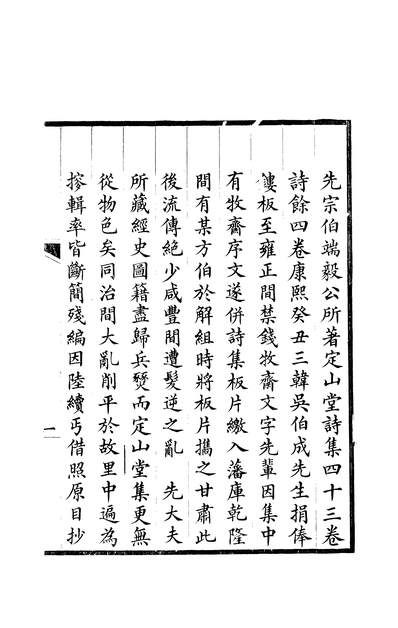 先宗伯端毅公所著定山堂詩集四十三卷
詩餘四卷康熙癸丑三韓吳伯成先生捐俸
鏤板至雍正間禁錢牧齋文字先輩因集中
有牧齋序文遂併詩集板片繳入藩庫乾隆
間有某方伯於解組時將板片攜之甘肅此
後流傳絕少咸豐間遭髮逆之亂 先大夫
所藏經史圖籍盡歸兵燹而定山堂集更無
從物色矣同治間大亂削平於故里中遍為
搜輯率皆斷簡殘編因陸續丐借照原目抄
一